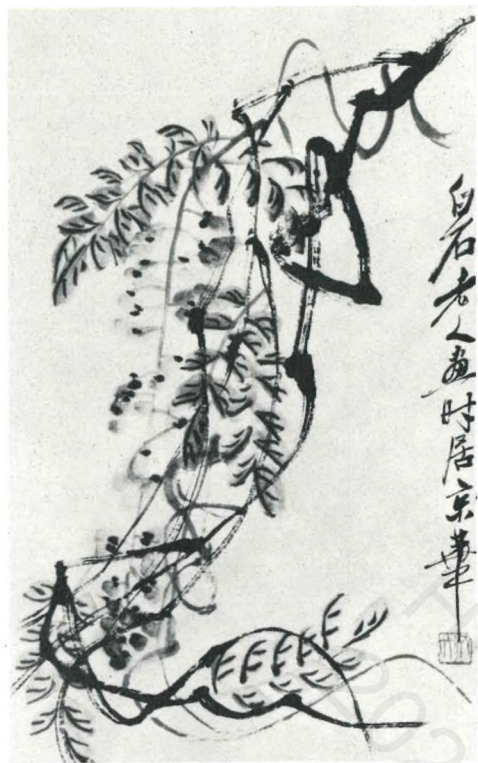 白石老人画时居京华